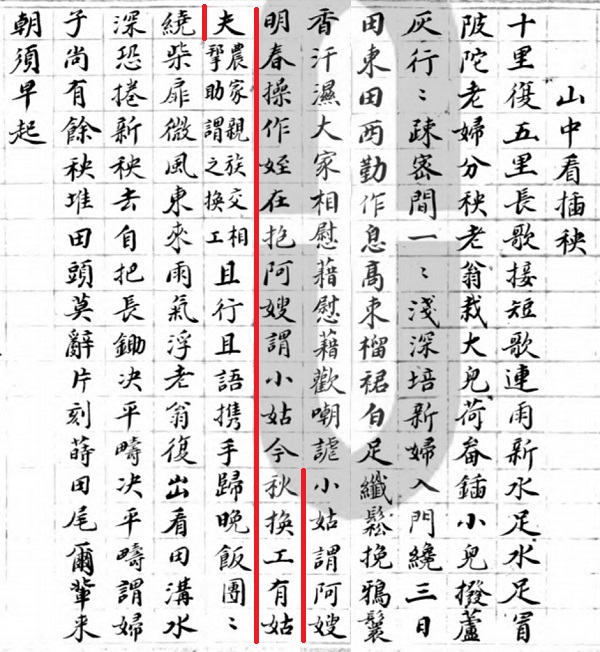 山中看插秧
十里復五里長歌接短歌連雨新水足水足冒
陂陀老婦分秧老翁栽大兒荷畚鍤小兒撥蘆
灰行〻疎密間一〻淺深培新婦入門纔三日
田東田西勤作息高束榴裙白足纖鬆挽鴉鬟
香汗濕大家相慰藉慰藉歡嘲謔小姑謂阿嫂
明春操作姪在抱阿嫂謂小姑今秋換工有姑
夫農家親族交相挐助謂之換工且行且語携手歸晚飯團〻
繞柴扉微風東來雨氣浮老翁復出看田溝水
深恐捲新秧去自把長鋤决平疇决平疇謂婦
子尚有餘秧堆田頭莫辭片刻蒔田尾爾輩来
朝須早起